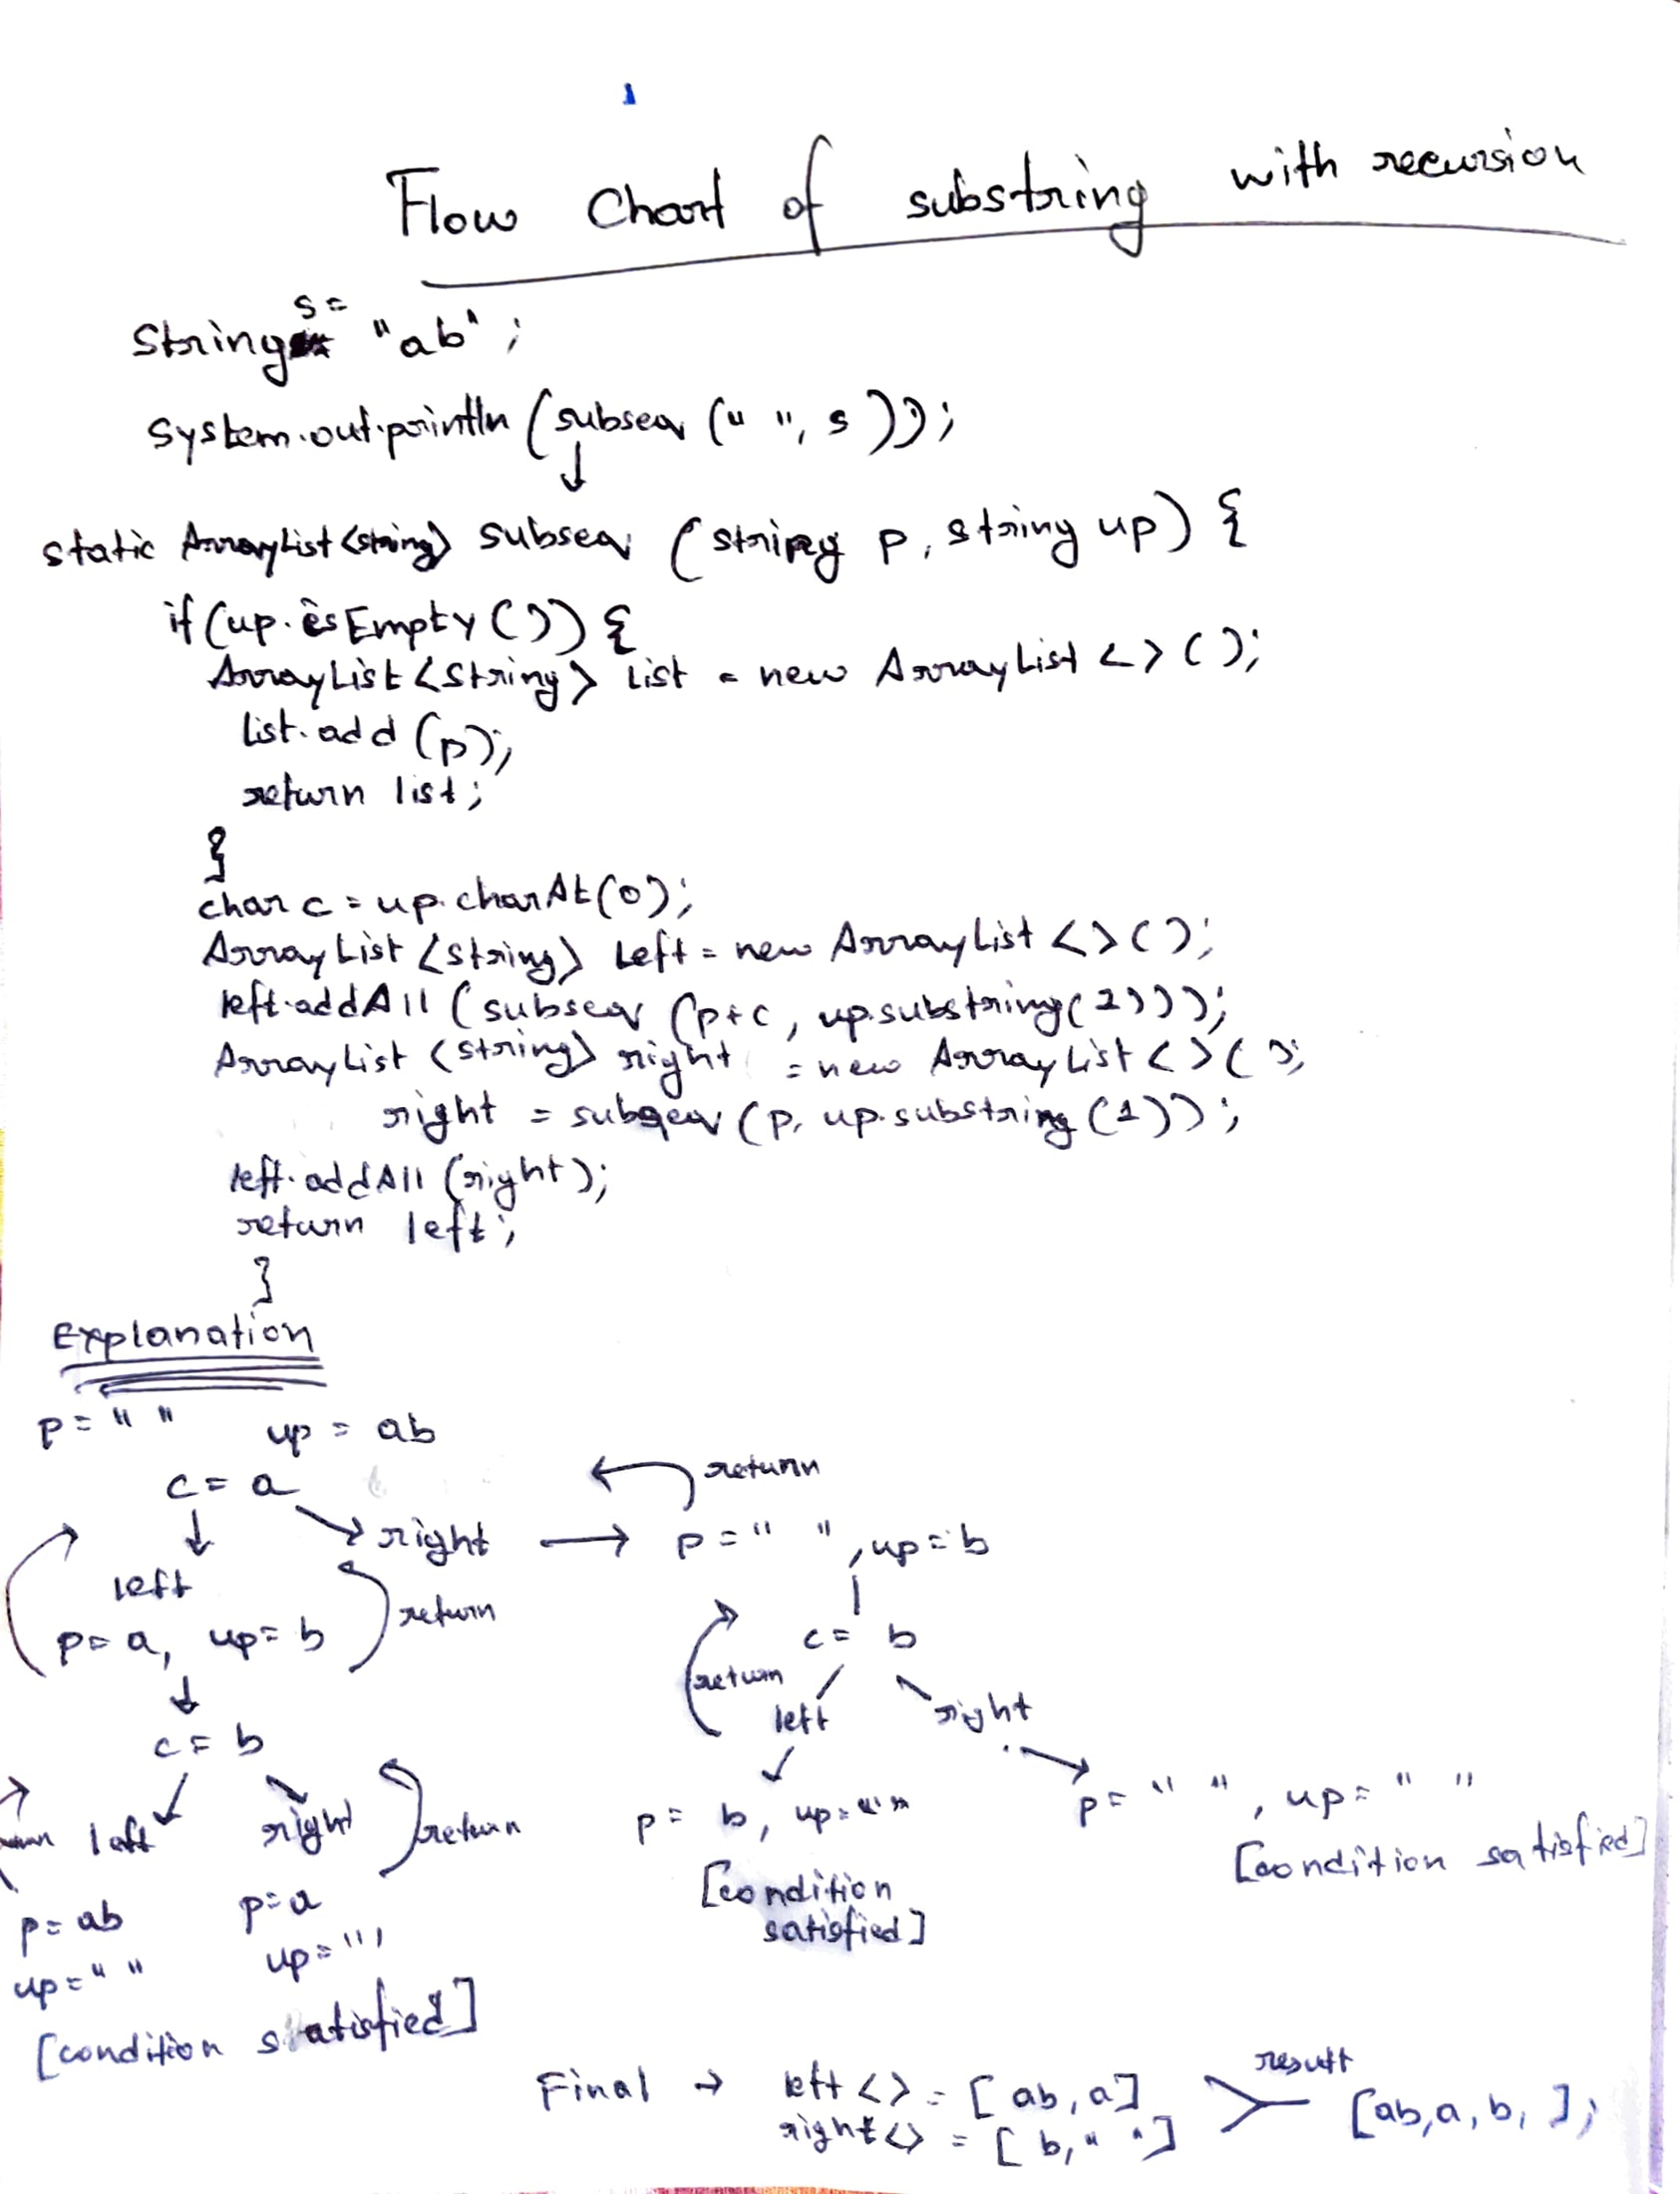 Flow Chart of substring with recursion
String s = "ab";
System.out.println (subseq (" ", s));
static ArrayList <string> subseq (string p, string up) {
if (up.isEmpty ()) {
ArrayList <String> list = new ArrayList <> ();
list.add (p);
return list;
}
char c = up.charAt(0);
ArrayList <string> left = new ArrayList <> ();
left.addAll (subseq (p+c, up.substring(1)));
ArrayList <string> right = new ArrayList <> ();
right = subseq (p, up.substring (1));
left.addAll (right);
return left;
}
Explanation
p = " " up = ab
c = a
return
right → p = " ", up = b
left
p = a, up = b
return
c = b
return
left right
c = b
left right
return
p = b, up = " "
p = " ", up = " "
[condition satisfied]
[condition
satisfied]
p = ab p = a
up = " " up = " "
[condition satisfied]
Final → left <> = [ab, a]
right <> = [b, " "]
result
[ab, a, b, ];